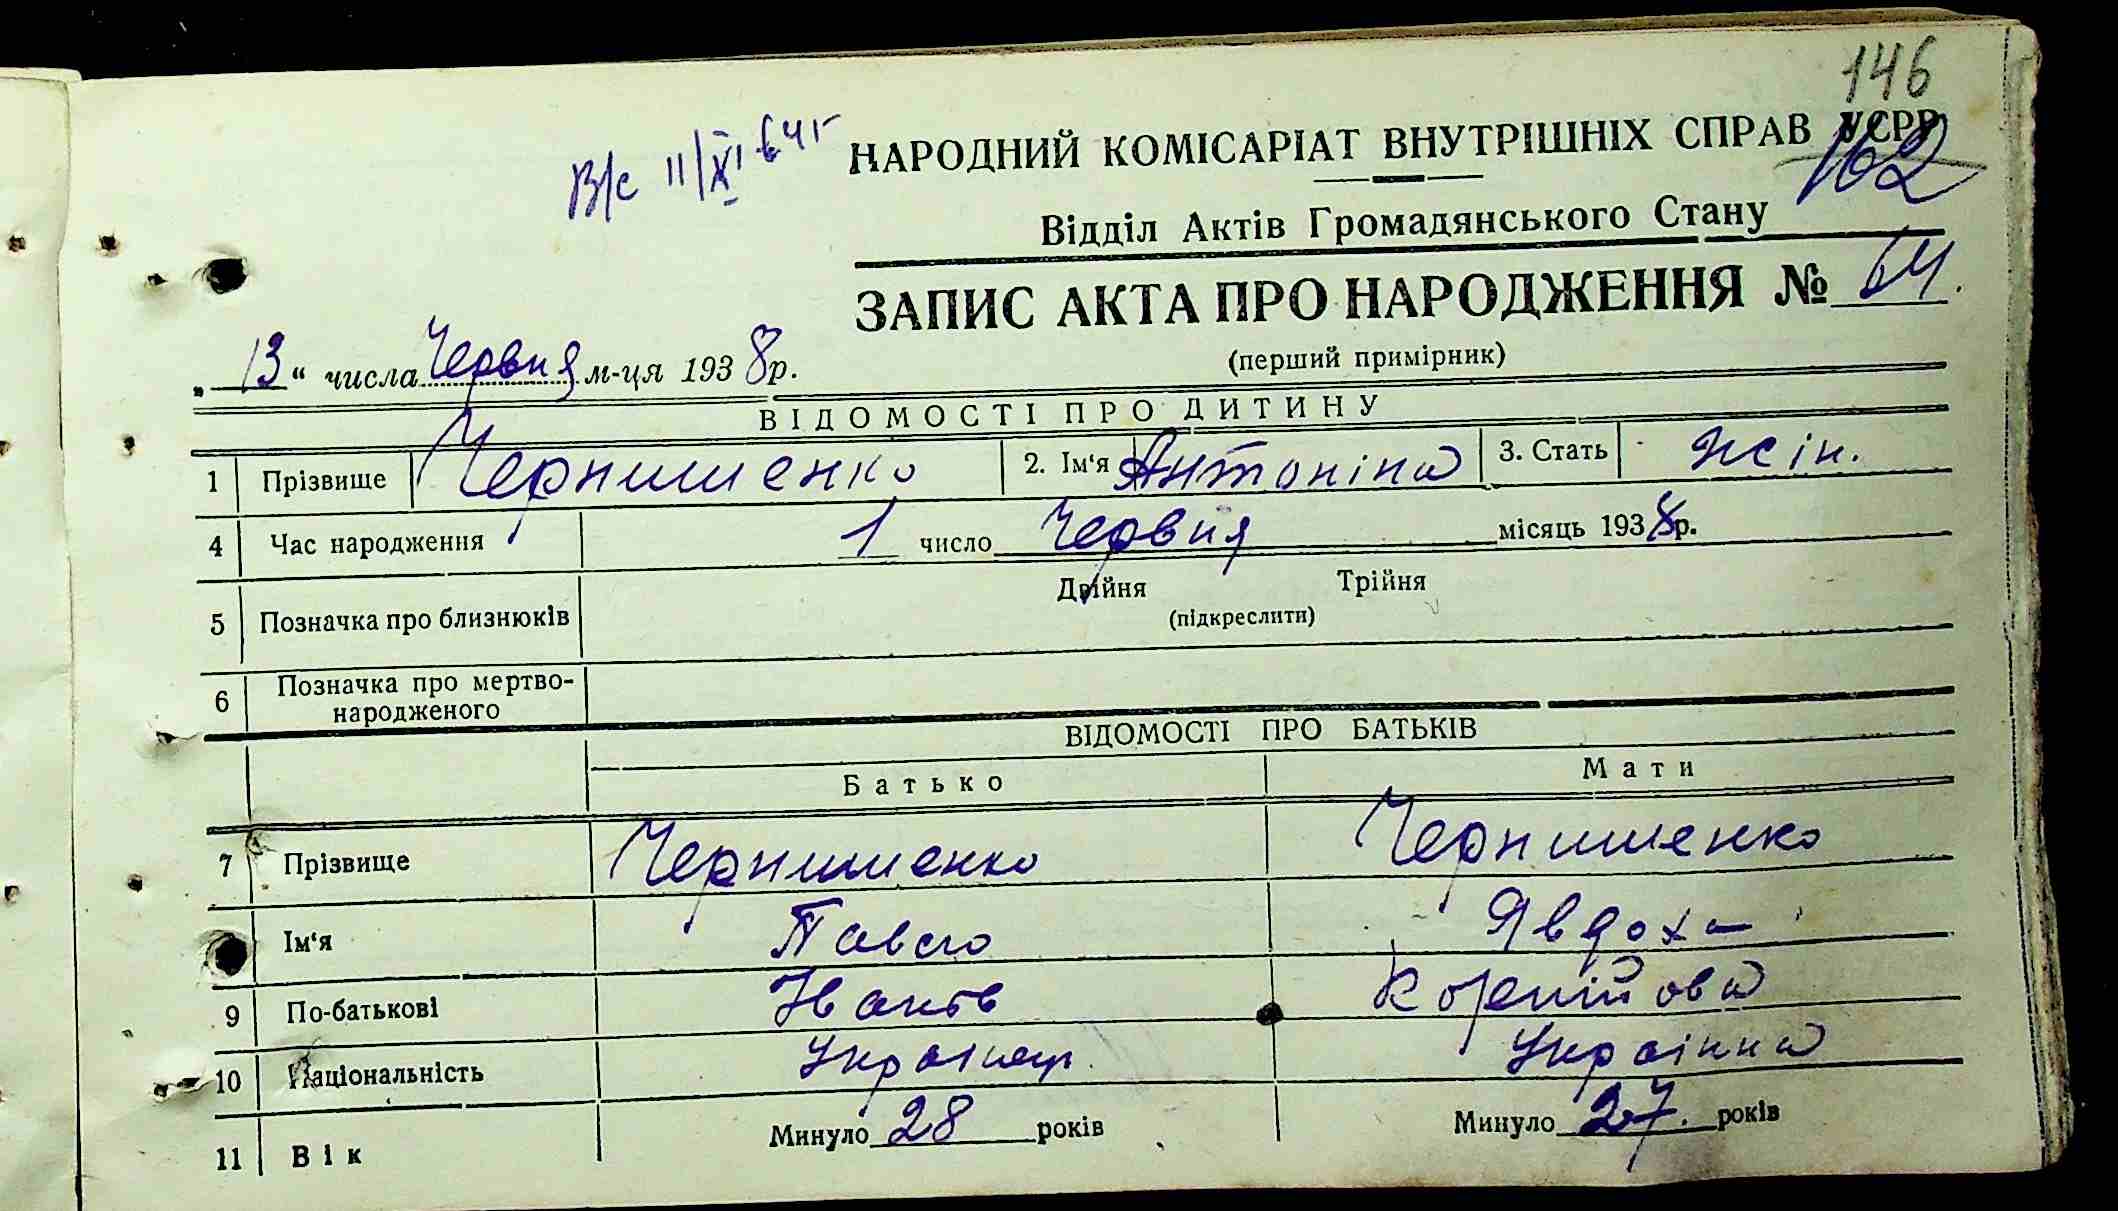 146
В/с 11/XI 64 г
НАРОДНИЙ КОМІСАРІАТ ВНУТРІШНІХ СПРАВ УСРР
162
Відділ Актів Громадянського Стану
ЗАПИС АКТА ПРО НАРОДЖЕННЯ № 64.
(перший примірник)
„13“ числа Червня м-ця 1938 р.
ВІДОМОСТІ ПРО ДИТИНУ
1 Прізвище Чернишенко 2. Ім‘я Антоніна 3. Стать жін.
4 Час народження 1 число Червня місяць 1938 р.
5 Позначка про близнюків Двійня Трійня
(підкреслити)
6 Позначка про мертво-
народженого
ВІДОМОСТІ ПРО БАТЬКІВ
Батько Мати
7 Прізвище Чернишенко Чернишенко
Ім‘я Павло Явдоха
9 По-батькові Іванов Корнійовна
10 Національність Українец Українка
11 Вік Минуло 28 років Минуло 27. років